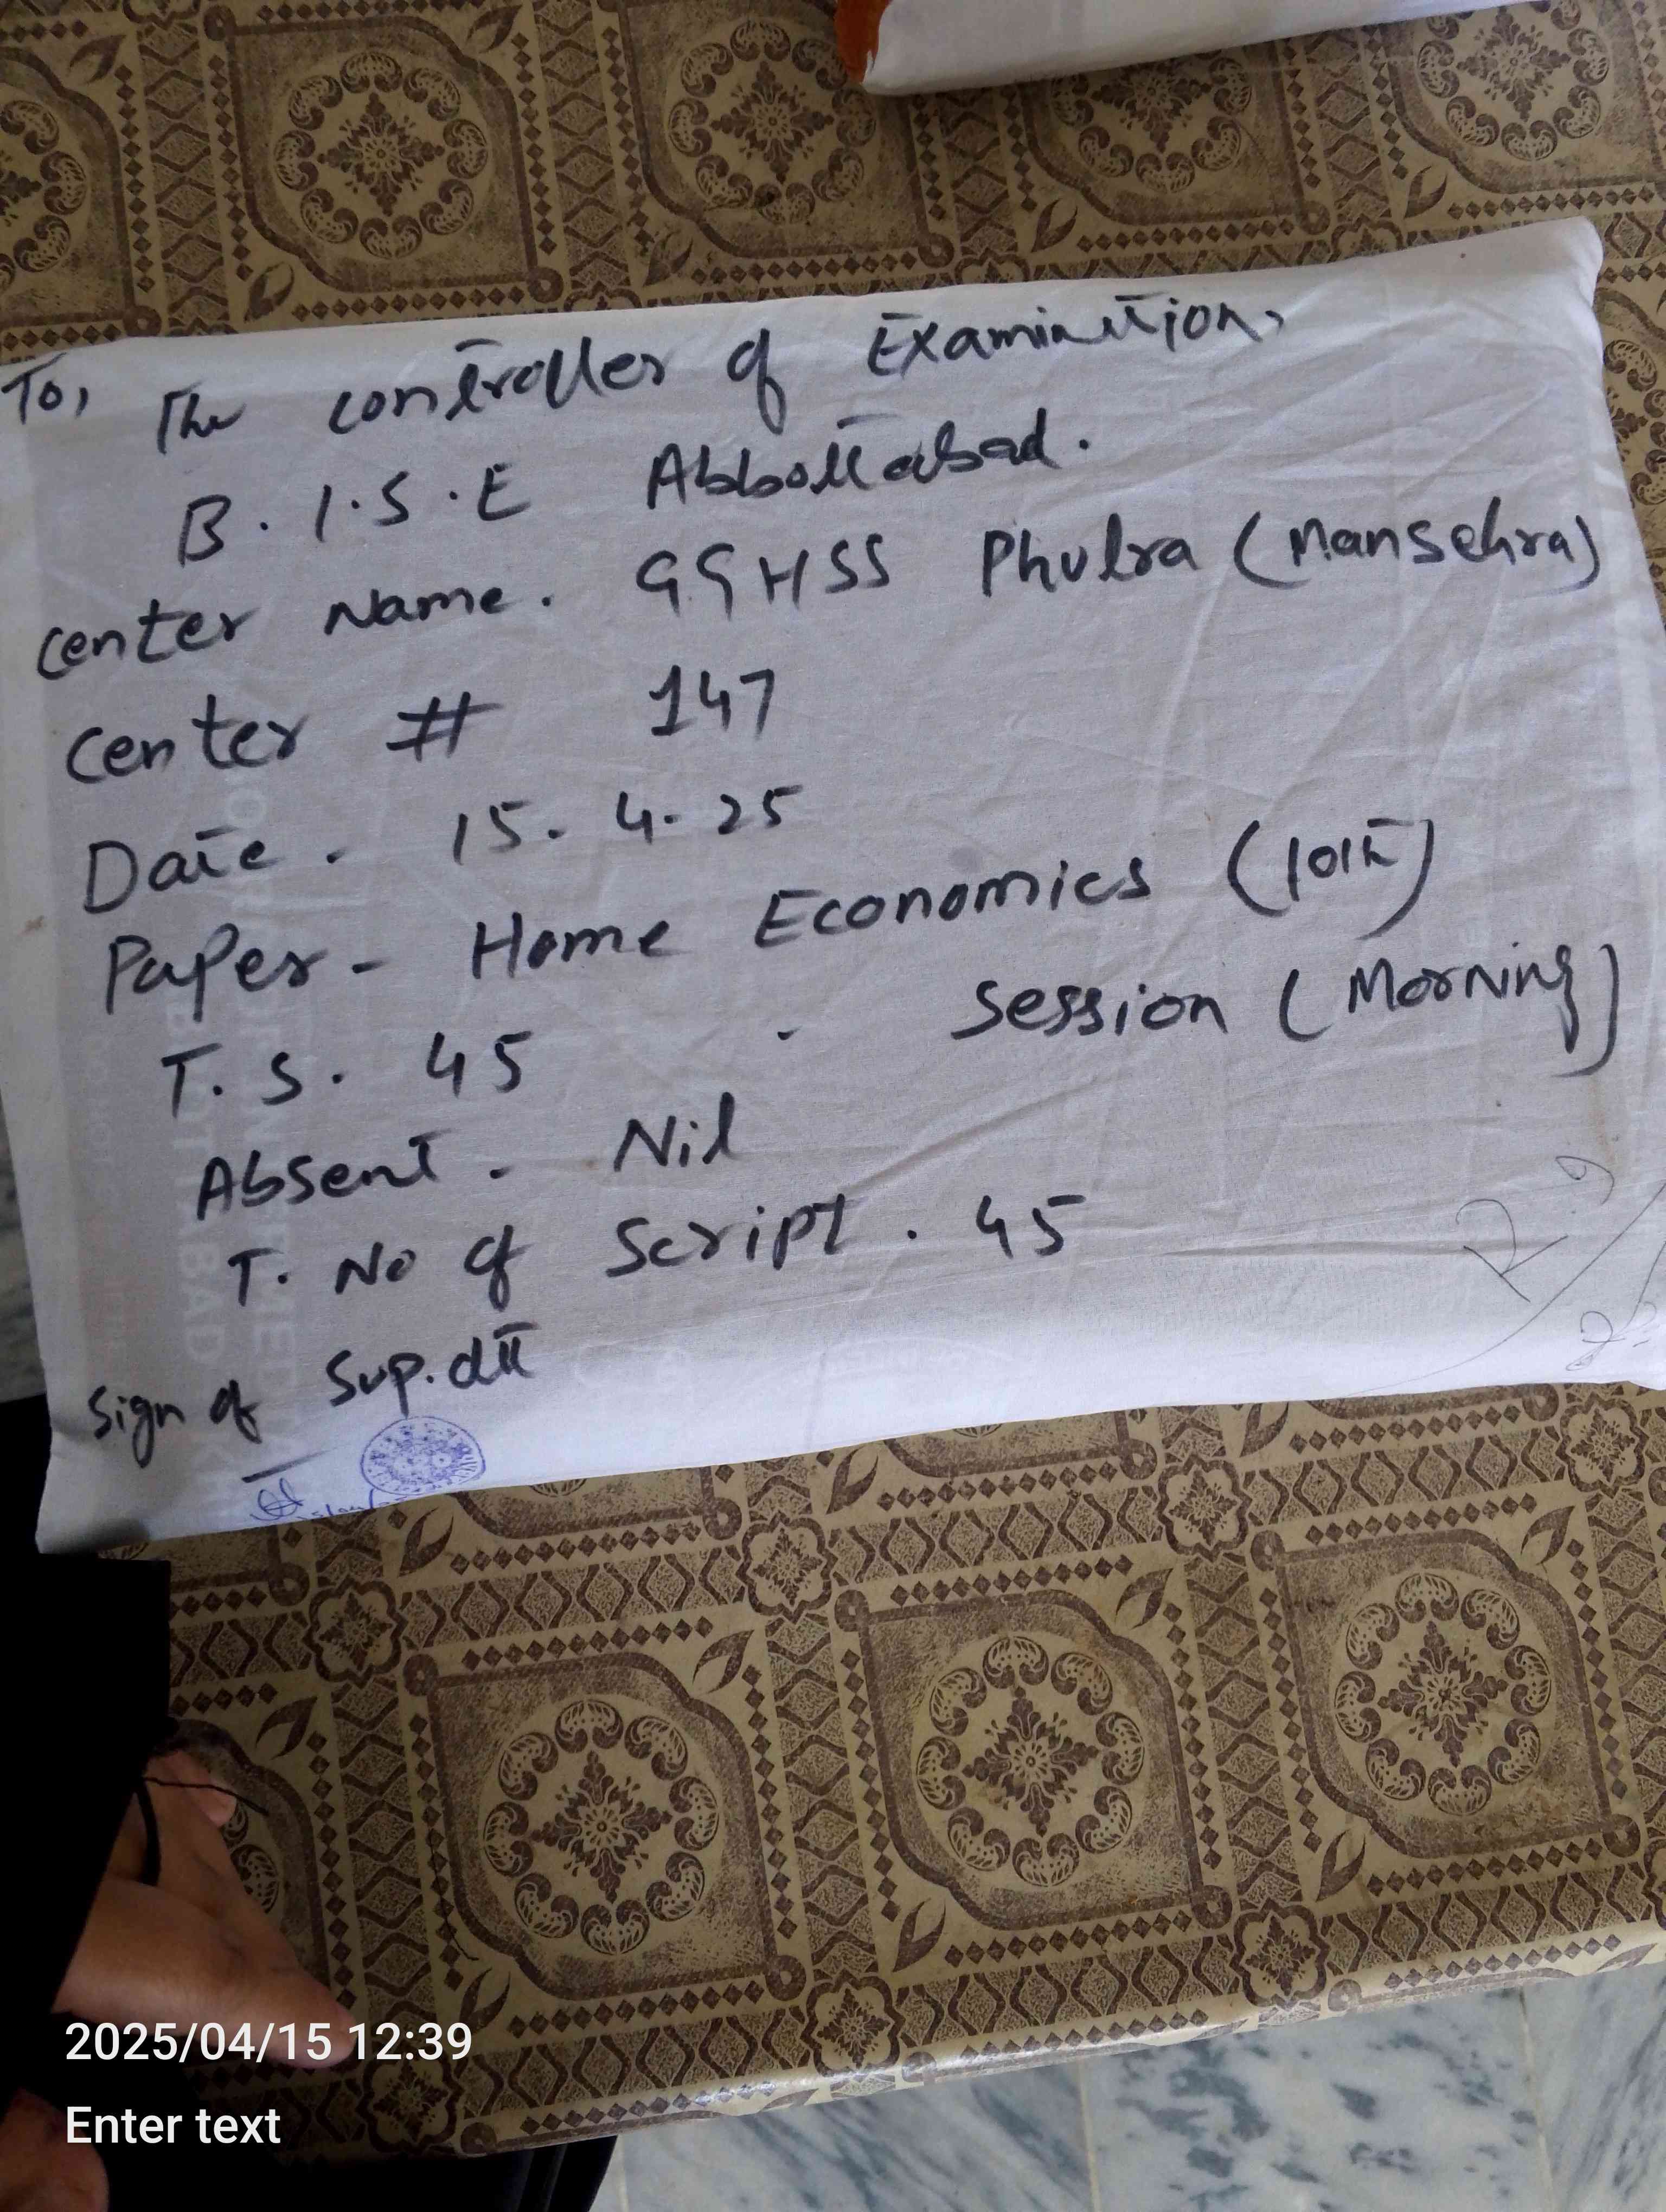 To, The controller of Examination,
B.I.S.E Abbottabad.
Center Name. GGHSS Phulra (Mansehra)
Center # 147
Date. 15.4.25
Paper - Home Economics (10th)
T.S. 45 - Session (Morning)
Absent. Nil
T. No of Script. 45
Sign of Sup.dtt
2025/04/15 12:39
Enter text